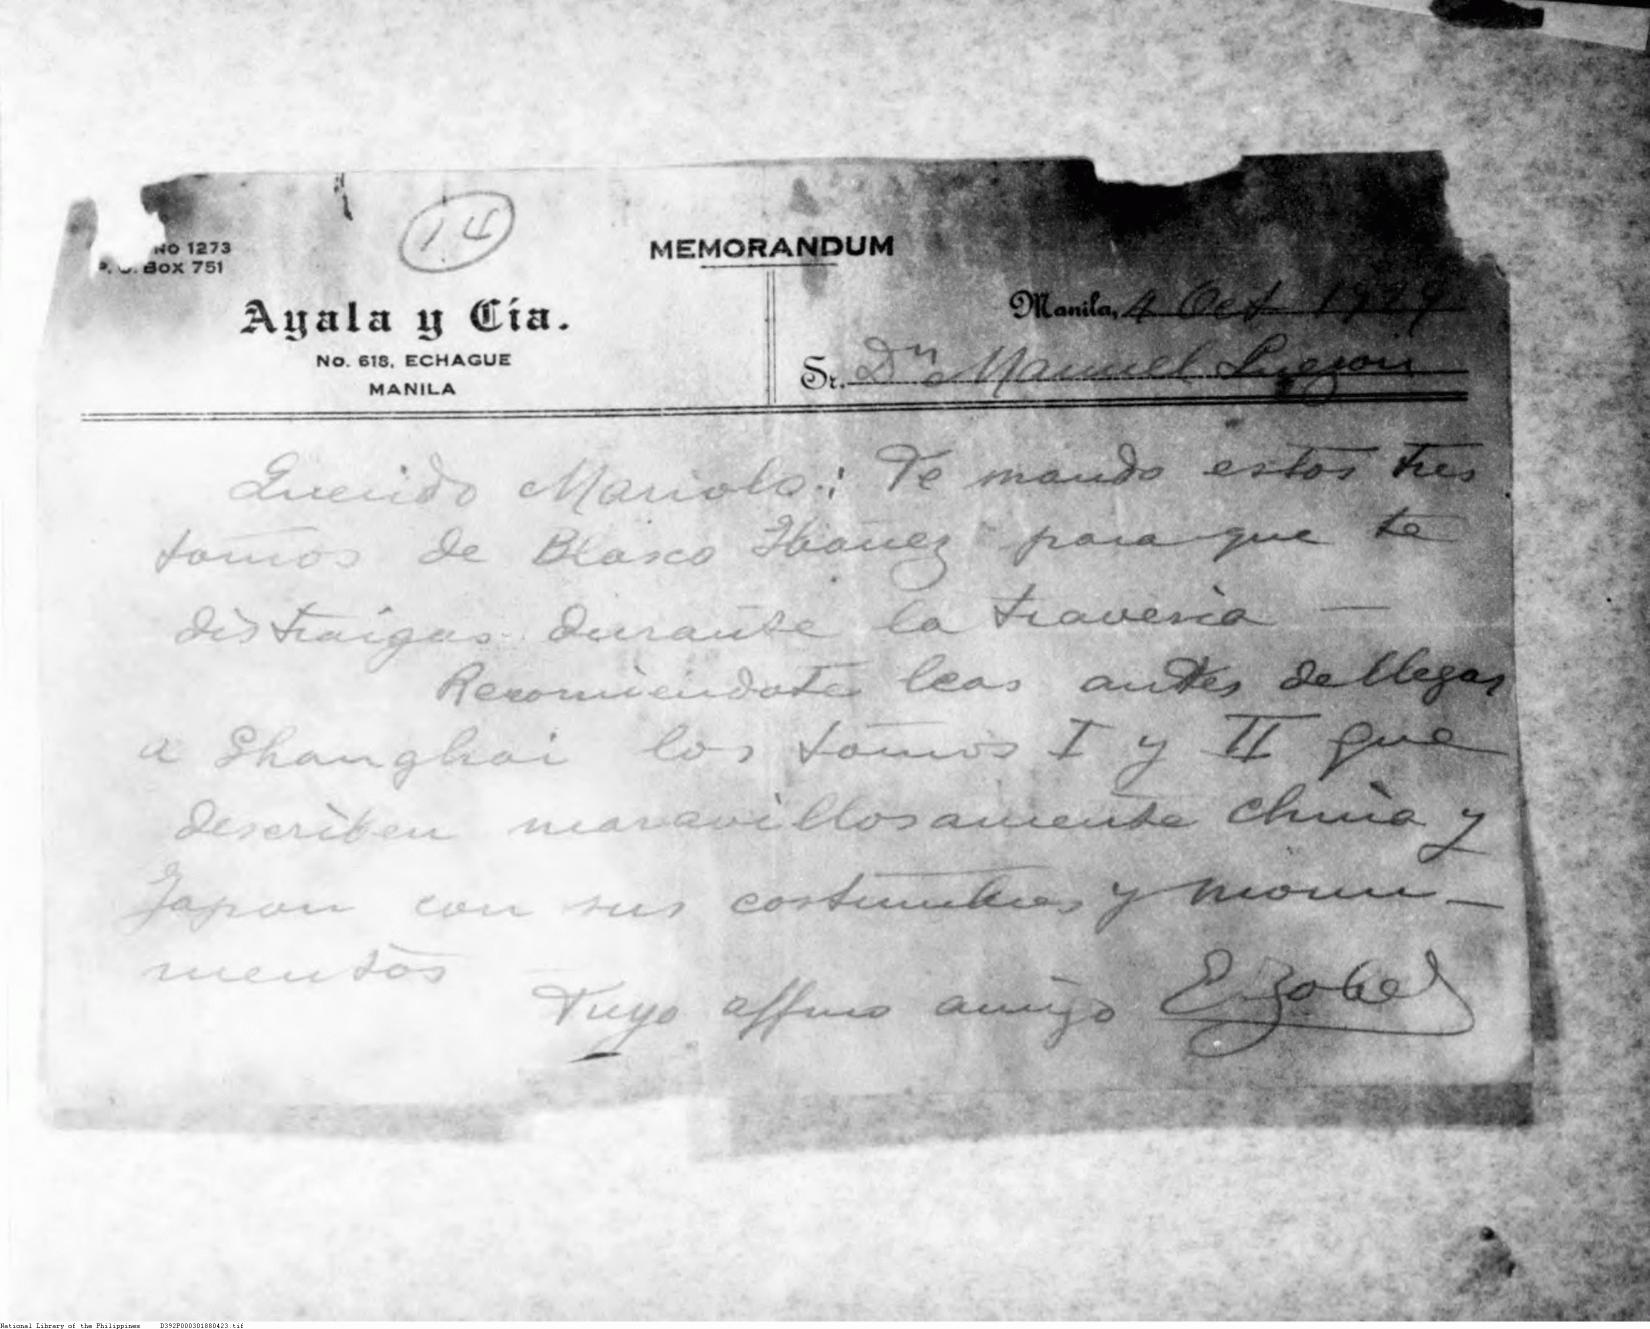 No 1273
14
MEMORANDUM
P. O. BOX 751
Ayala y Cía.
Manila, 4 Oct 1929
No. 618, ECHAGUE
Sr. Dn Manuel Quezon
MANILA
Querido Manolo: Te mando estos tres
tomos de Blasco Ibañez para que te
distraigas durante la travesia —
Recomiendote leas antes de llegar
a Shanghai los tomos I y II que
describen maravillosamente China y
Japon con sus costumbres y monu-
mentos
Tuyo affmo amigo E. Zobel
National Library of the Philippines D392P000301880423.tif